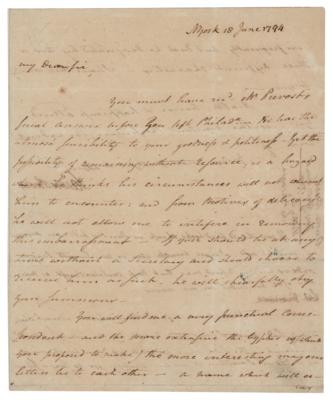 NYork 18 June 1794
My Dear Sir
You must have recd Mr Prevost's
final answer before you left Philada. He has the
utmost sensibility to your goodness & politeness. Yet the
possibility of remaining without service, is a hazard
which he thinks his circumstances will not
him to encounter; and from motives of delicacy
he will not allow me to interfere in removing
this embarrassment — If you should be at any
time without a Secretary and should choose to
receive him as such, he will chearfully obey
your summons —
You will find me a very punctual corre-
spondent — and the more extensive the Cypher (which
you proposed to make) the more interesting may our
letters be to each other — a name which will